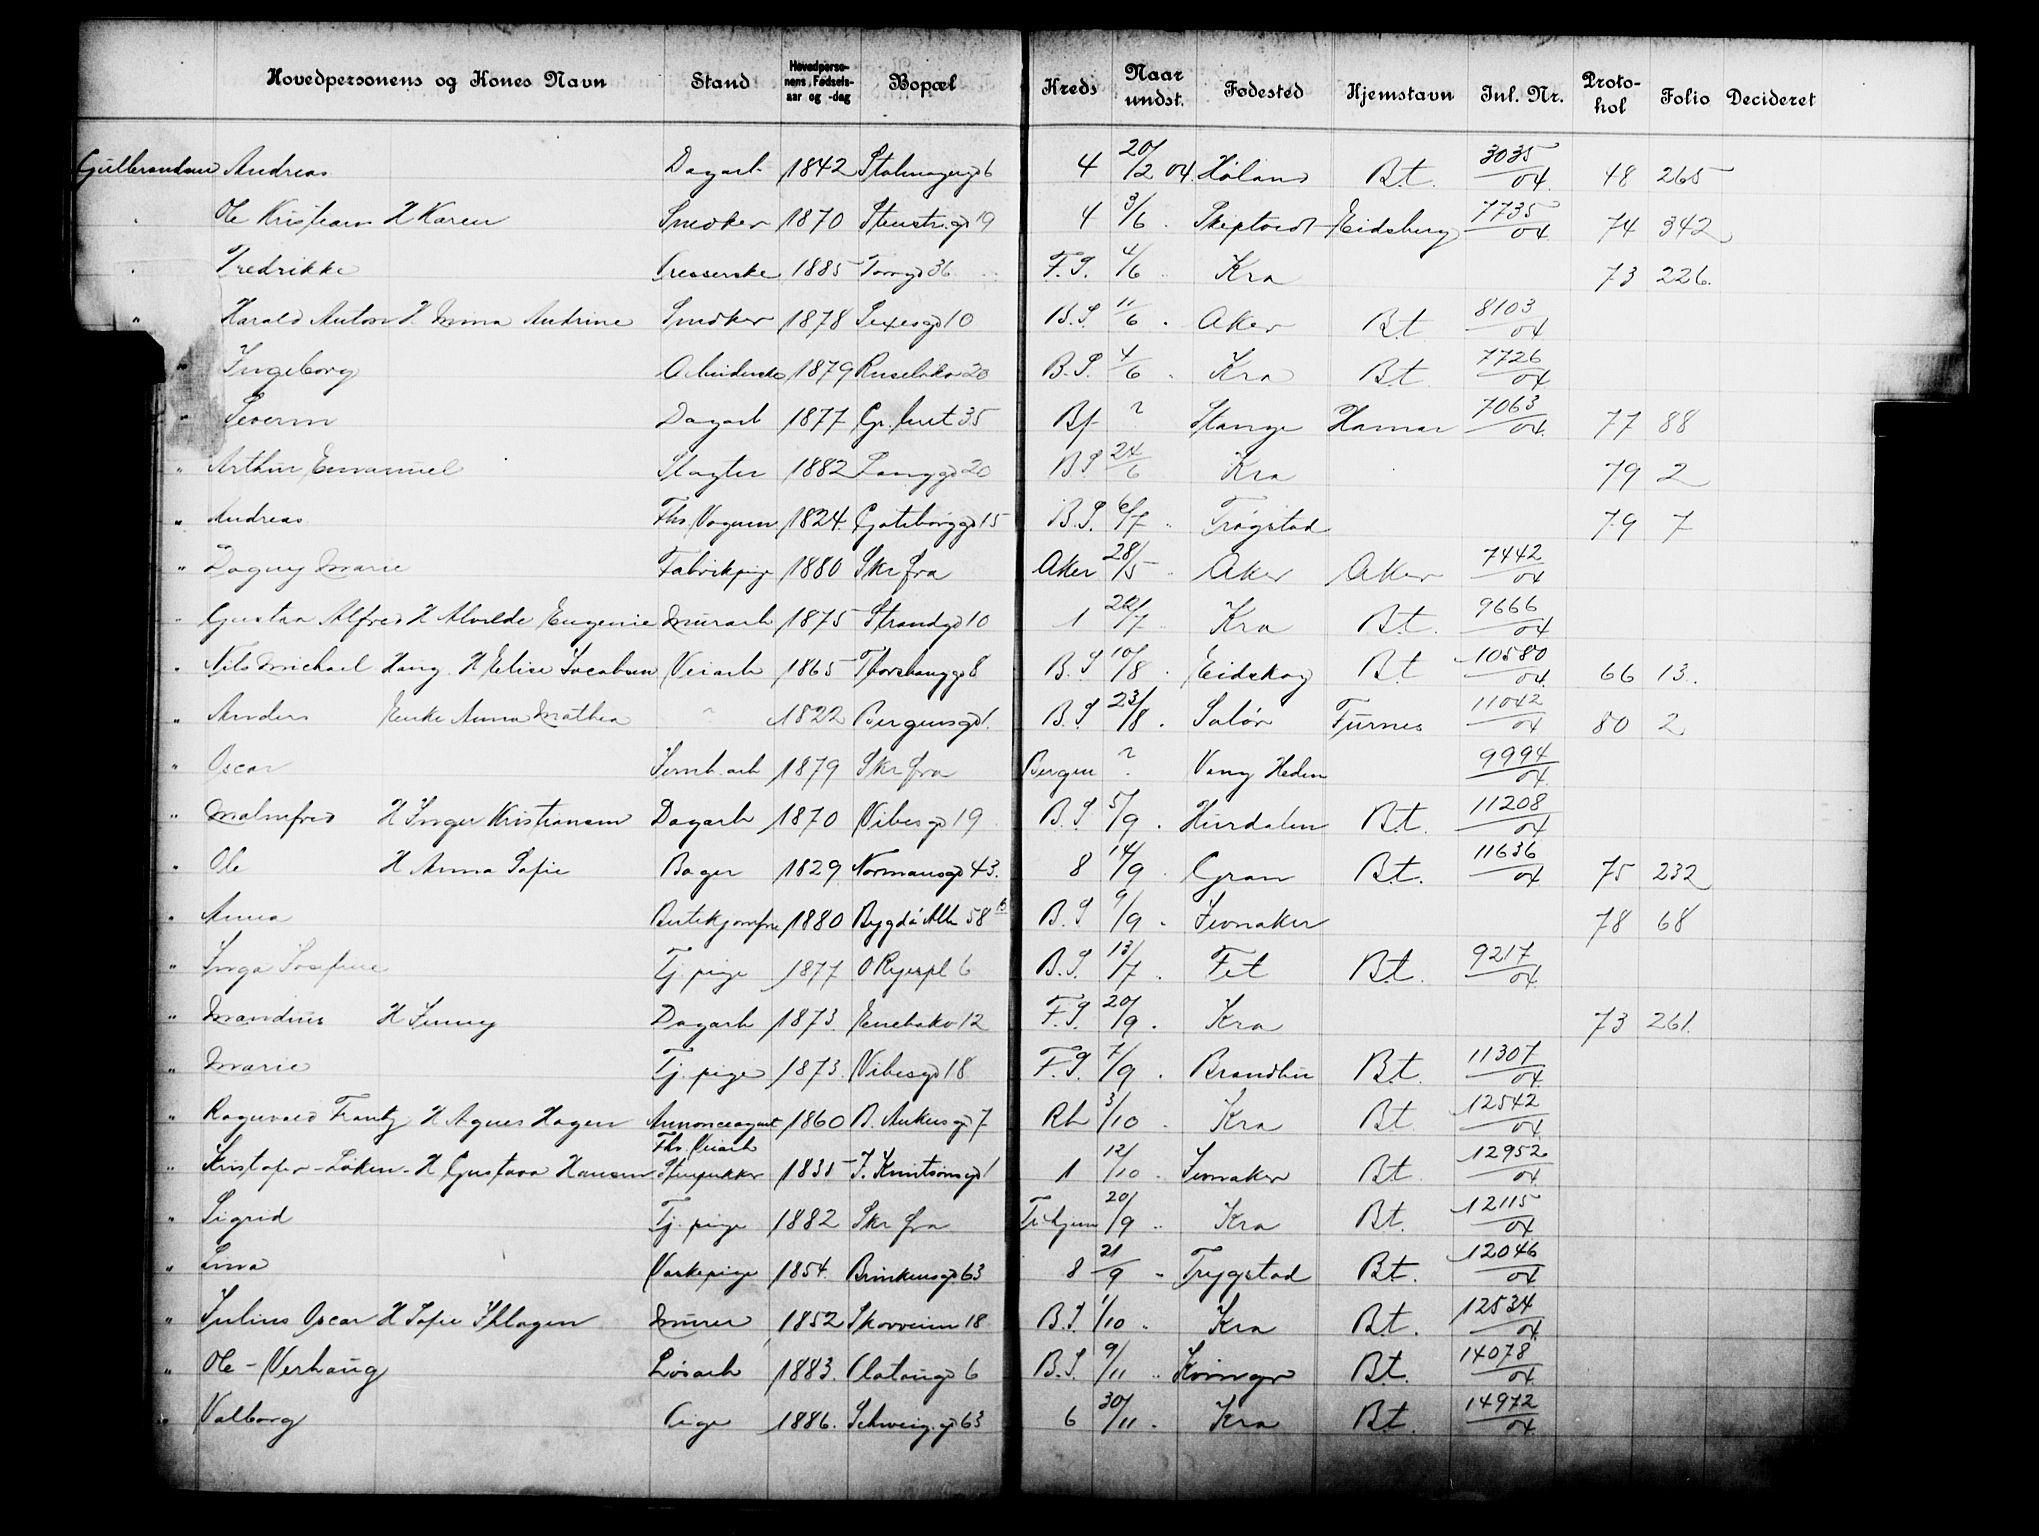 Hovedpersonens og Kones Navn Stand Hovedpersonens Fødselsaar og -dag Bopæl Kreds Naar undst. Fødested Hjemstavn Inl. Nr. Protokol Folio Decideret
Gulbrandsen Andreas Dagarb 1842 6 4 20/12 04. Høland B.t. 3035/04 48 265
Ole Kristian H Karen Snedker 1870 Stenstr.gd 19 4 3/6 Skiptvedt Eidsberg 7735/04 74 342
" Fredrikke Presserske 1885 Torvgd 36 F.S. 4/6 " Kra 73 226.
" Harald Anton H. Anna Andrine Snedker 1878 Sexesgd 10 B.S. 11/6 . Aker B.t 8103/04
" Ingeborg Arbeiderske 1879 Ruseløkv 20 B.S. 4/6 " Kra B.t. 7726/04
" Severin Dagarb 1877 Gr. 35 Bf ? Stange Hamar 7063/04. 77 88
" Arthur Emanuel Slagter 1882 Langgd 20 B.S 24/6 Kra 79 2
" Andreas Fhv Vognm 1824. Gøteborggd 15 B.S. 6/7 " Trøgstad 79 7
" Dagny Marie Fabrikpige 1880 Skr fra Aker 28/5 " Aker Aker 7442/04
" Gustav Alfred H Alvilde Eugenie Murarb 1875 Strandgd 10 1 22/7 " Kra B.t. 9666/04
" Nils Michael Haug. H Elise Jacobsen Veiarb 1865 Thorshauggd 8 B.S 10/8 . Eidskog B.t 10580/04. 66 13.
" Anders Enke Anna Mathea " 1822 Bergensgd 1. B.S 23/8 . Solør Furnes 11042/04 80 2
" Oscar Jernb.arb 1879 Skr fra Bergen ? Vang Hedm 9994/04.
" Malmfred H Inger Kristiansen Dagarb 1870 Vibesgd 19 B.S 5/9 . Hurdalen B.t. 11208/04
" Ole H Anna Sofie Bager 1829. Normansgd 43. 8 14/9 . Gran B.t. 11636/04 75 232
" Anna Butikjomfru 1880 Bygdø Alle 58 B B.S 9/9 . Jevnaker 78 68
" Inga Josefine Tj. pige 1877 O Ryespl 6 B.S. 13/7 . Fet B.t. 9217/04
" Mandius H Jenny Dagarb 1873. Enebakv 12 F.S. 20/9 . Kra 73 261.
" Marie Tj. pige 1873. Vibesgd 18 F.S. 7/9 . Brandbu B.t. 11307/04.
" Ragnvald Frantz H Agnes Hagen Annonceagent 1860 B. Ankersgd 7 Rh 3/10 . Kra B.t 12542/04.
" Kristofer - Løken - H Gustava Hansen Fhv. Veiarb Stenpukker 1835 J. Knutsonsgd 1 1 12/10 . Jevnaker B.t. 12952/04
" Sigrid Tj. pige 1882 Skr fra 20/9 " Kra B.t. 12115/04
" Lina Vaskepige 1854. Brinkensgd. 63 8 21/9 " Trygstad B.t. 12046/04
" Julius Oscar H Sofie Murer 1852 Skovveien 18 B.S. 1/10 . Kra B.t. 12534/04.
" Ole - Verhaug Løsarb 1883. Platougd 6 B.S. 9/11 " Kvinngr B.t. 14078/04
" Valborg Pige 1886. Schweig.gd 63 6 30/11 . Kra B.t. 14972/04